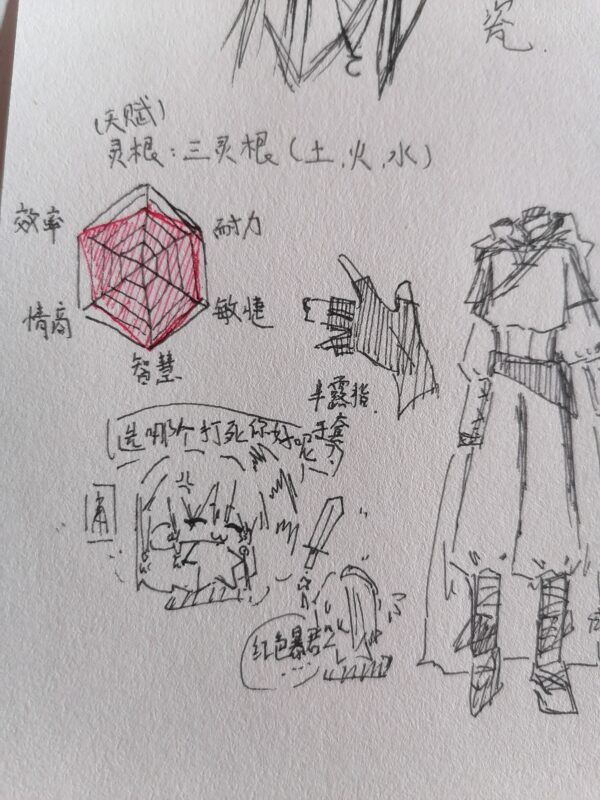 瓷
(天赋)
灵根：三灵根(土,火,水)
效率
耐力
情商
敏捷
智慧
半露指
手套
选哪个打死你好呢
红色暴君